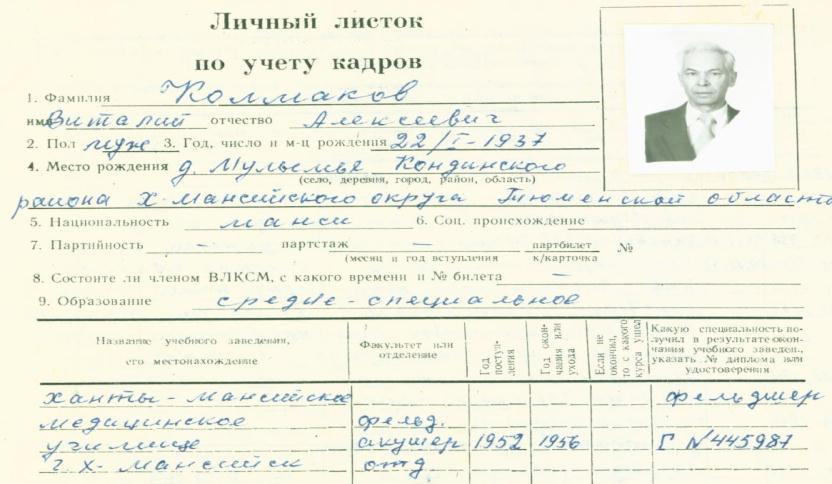 Личный листок
по учету кадров
1. Фамилия Колмаков
имя Виталий отчество Алексеевич
2. Пол муж 3. Год, число и м-ц рождения 22/I-1937
4. Место рождения д. Мулымья Кондинского
(село, деревня, город, район, область)
района Х-Мансийского округа Тюменской области
5. Национальность манси 6. Соц. происхождение
7. Партийность — партстаж — партбилет №
(месяц и год вступления к/карточка
8. Состоите ли членом ВЛКСМ, с какого времени и № билета —
9. Образование средне-специальное
Название учебного заведения, его местонахождение
Факультет или отделение
Год поступления
Год окончания или ухода
Если не окончил, то с какого курса ушел
Какую специальность получил в результате окончания учебного заведен., указать № диплома или удостоверения
Ханты-Мансийское фельдшер
медицинское фельд.
училище акушер 1952 1956 Г №445987
г Х-Мансийск отд